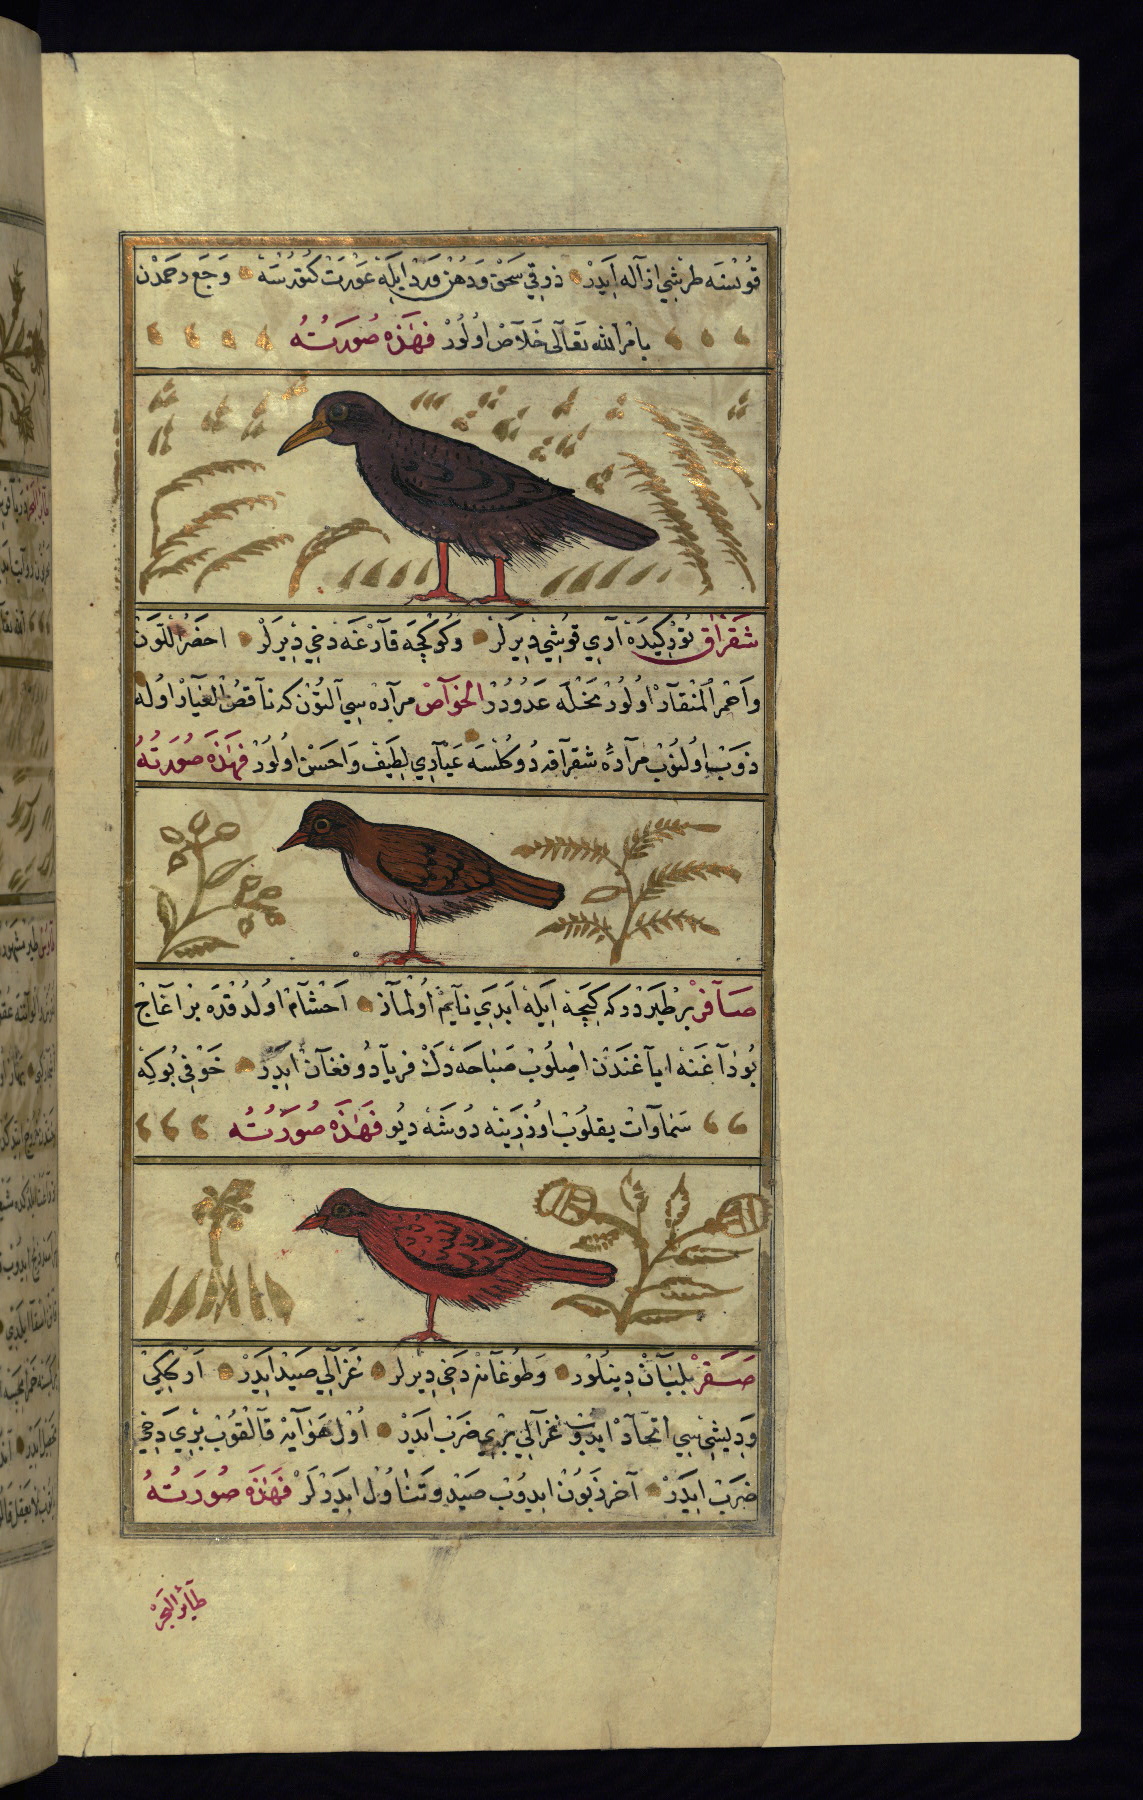 قونسه طرشی ازاله ایدر ذوقی سحق ودهن ورد ایله عورت کتورسه وجع رحمدن
بامر الله تعالی خلاص اولور فهذه صورته
شقراق تورکیده آری قوشی دیرلر وکوکجه قارغه دخی دیرلر احضر اللون
واحمر المنقار اولور نخله عدودر الخواص مراره سی آلتون که ناقص العیار اوله
ذوب اولنوب مراره شقراقه دوکلسه عیاری لطیف واحسن اولور فهذه صورته
صافر بر طیردرکه کیجه ایله ابدی نایم اولماز احشام اولدقده بر اغاج
بوداغنه ایاغندن اصلوب صباحه دك فریاد وفغان ایدر خوفی بوکه
سماوات یقلوب اوزرینه دوشه دیو فهذه صورته
صقر بلبان دینلور وطوغان دخی دیرلر غزالی صید ایدر ارککی
ودیشی سی اتحاد ایدوب غزالی بری ضرب ایدر اول هوایه قالقوب بری دخی
ضرب ایدر آخر زبون ایدوب صید وتناول ایدرلر فهذه صورته
طایر البحر